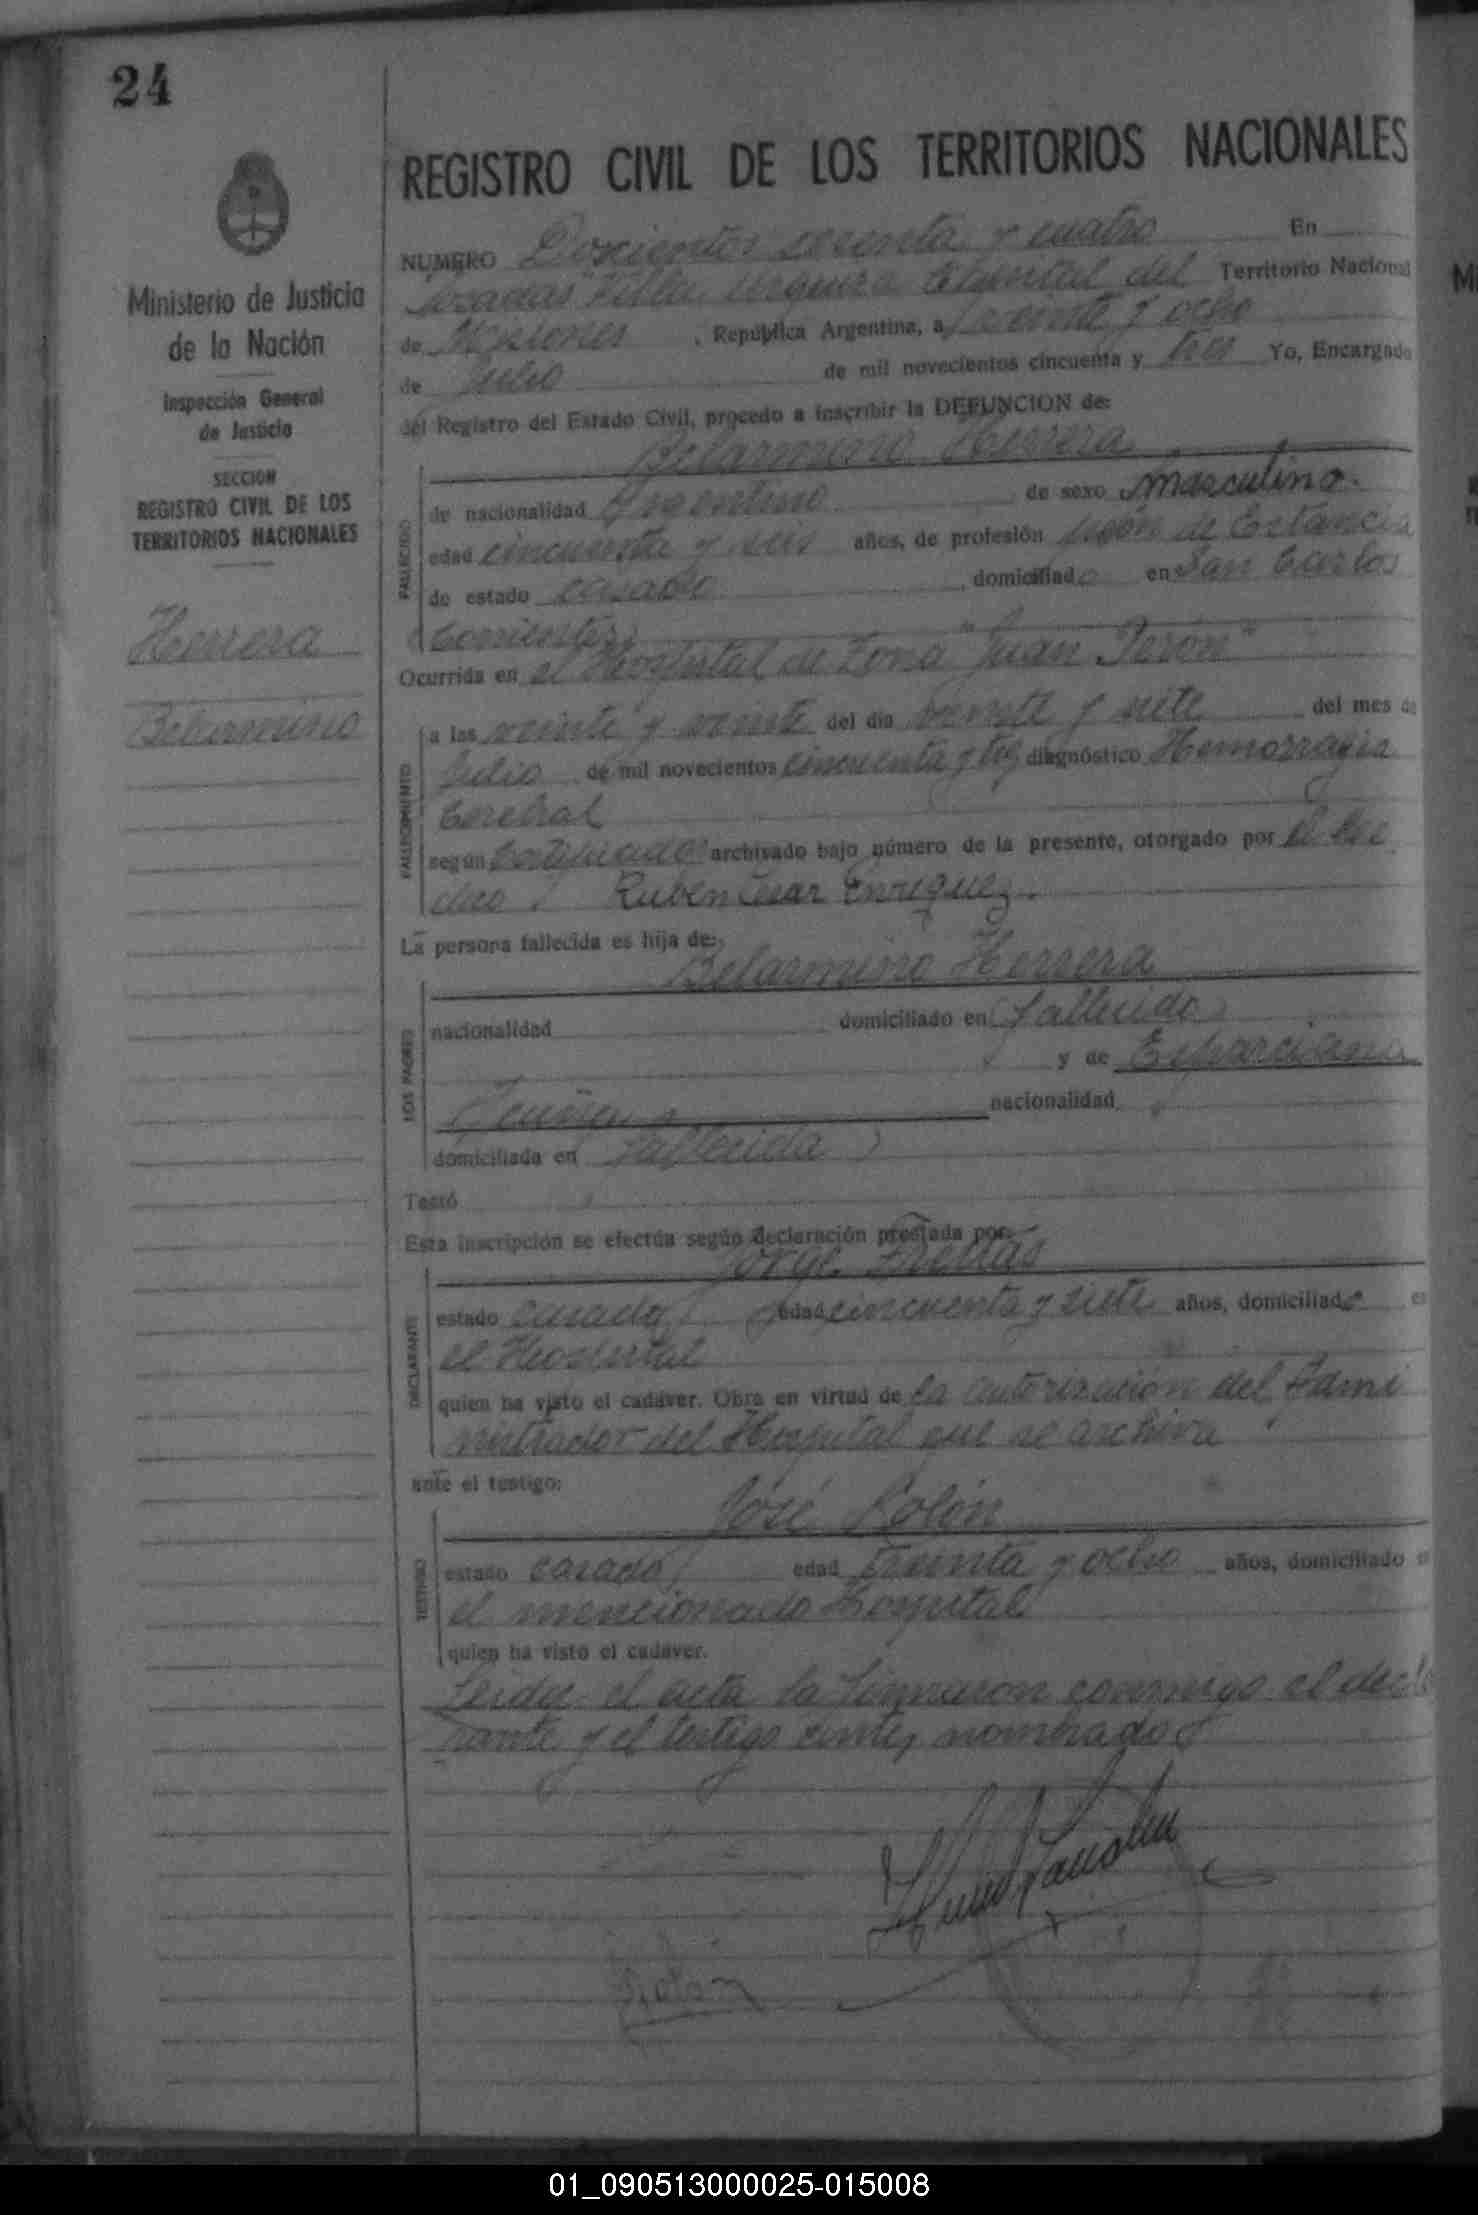 24
REGISTRO CIVIL DE LOS TERRITORIOS NACIONALES
Ministerio de Justicia
de la Nación
Inspección General
de Justicia
SECCION
REGISTRO CIVIL DE LOS
TERRITORIOS NACIONALES
Herrera
Belarmino
NUMERO Doscientos y cuatro En
Posadas Villa Urquiza del Territorio Nacional
de Misiones , República Argentina, a veinte y ocho
de Julio de mil novecientos cincuenta y tres Yo, Encargado
del Registro del Estado Civil, procedo a inscribir la DEFUNCION de:
Belarmino Herrera
FALLECIDO
de nacionalidad Argentino de sexo masculino.
edad cincuenta y seis años, de profesión peón de Estancia
de estado casado domiciliado en San Carlos
Corrientes
Ocurrida en el Hospital de Zona "Juan Perón"
FALLECIMIENTO
a las veinte y veinte del día veinte y siete del mes de
Julio de mil novecientos cincuenta y tres diagnóstico Hemorragia
Cerebral
según certificado archivado bajo número de la presente, otorgado por el
Ruben Cesar Enriquez.
La persona fallecida es hija de:
Belarmino Herrera
LOS PADRES
nacionalidad domiciliado en (fallecido)
y de
nacionalidad
domiciliada en fallecida)
Testó
Esta inscripción se efectúa según declaración prestada por:
Jorge
DECLARANTE
estado casado edad cincuenta y siete años, domiciliado en
el Hospital
quien ha visto el cadáver. Obra en virtud de la autorización del Admi
nistrador del Hospital que se archiva
ante el testigo:
José Rolón
TESTIGO
estado casado edad treinta y ocho años, domiciliado en
el mencionado Hospital
quien ha visto el cadáver.
Leída el acta la firmaron conmigo el decla
rante y el testigo antes nombrados
Rolón
01_090513000025-015008